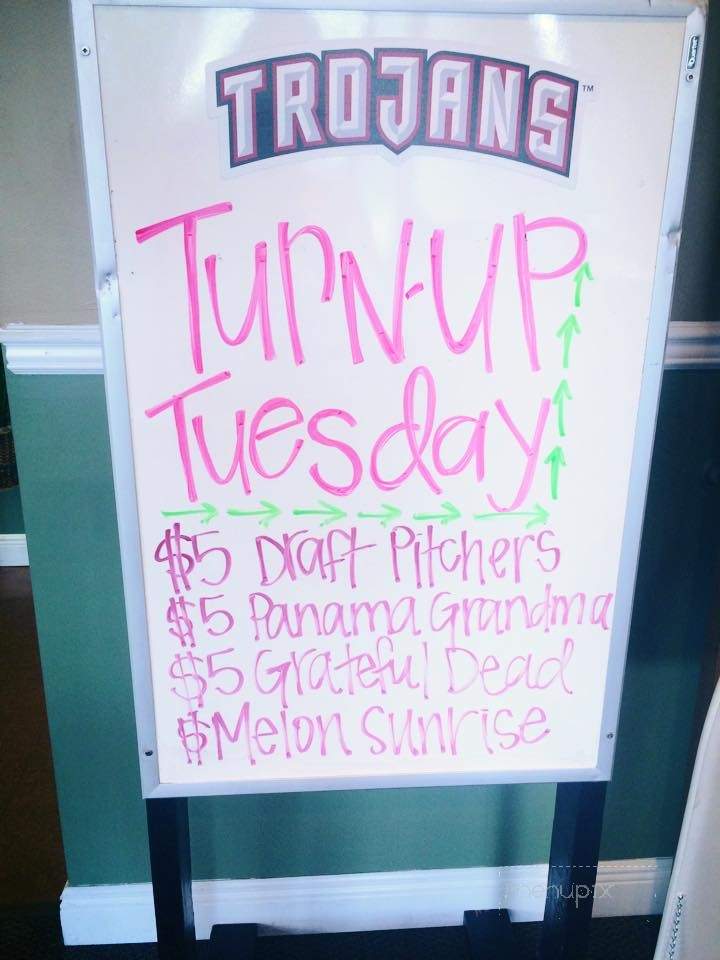 TROJANS™
Turn-UP
Tuesday
$5 Draft Pitchers
$5 Panama Grandma
$5 Grateful Dead
$5 Melon Sunrise
menupix